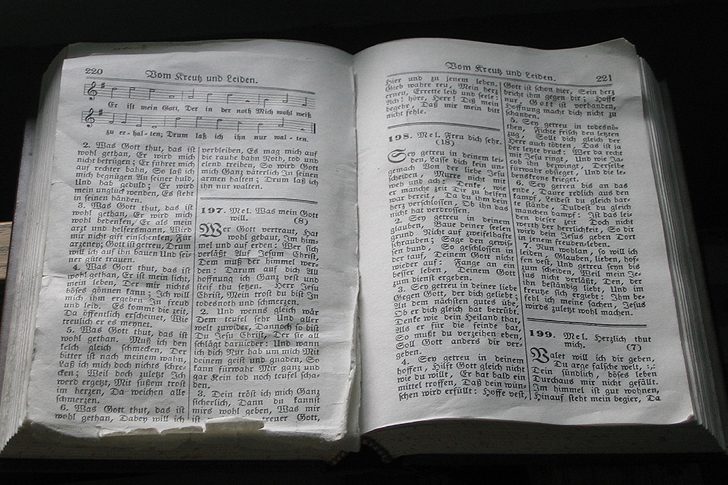 220
Vom Kreutz und Leiden.
Er ist mein Gott, Der in der noth Mich wohl weiß
zu er-hal-ten; Drum laß ich ihn nur wal-ten.
2. Was Gott thut, das ist
wohl gethan, Er wird mich
nicht betrügen; Er führet mich
auf rechter bahn, So laß ich
mich begnügen An seiner huld,
Und hab geduld; Er wird
mein unglück wenden, Es steht
in seinen händen.
3. Was Gott thut, das ist
wohl gethan, Er wird mich
wohl bedenken, Er als mein
arzt und helfersmann, Wird
mir nicht gift einschenken, Für
arzeney; Gott ist getreu, Drum
will ich auf ihn bauen Und sei-
ner güte trauen.
4. Was Gott thut, das ist
wohl gethan, Er ist mein licht,
mein leben, Der mir nichts
böses gönnen kann; Ich will
mich ihm ergeben In freud
und leid, Es kommt die zeit,
Da öffentlich erscheinet, Wie
treulich er es meynet.
5. Was Gott thut, das ist
wohl gethan, Muß ich den
kelch gleich schmecken, Der
bitter ist nach meinem wahn,
Laß ich mich doch nichts schre-
cken; Weil doch zuletzt Ich
werd ergetzt, Mit süßem trost
im herzen, Da weichen alle
schmerzen.
6. Was Gott thut, das ist
wohl gethan, Dabey will ich
verbleiben, Es mag mich auf
die rauhe bahn Noth, tod und
elend treiben, So wird Gott
mich Ganz väterlich In seinen
armen halten; Drum laß ich
ihn nur walten.
197. Mel. Was mein Gott
will. (8)
Wer Gott vertraut, Hat
wohl gebaut, Im him-
mel und auf erden: Wer sich
verläßt Auf Jesum Christ,
Dem muß der himmel wer-
den: Darum auf dich All
hoffnung ich Ganz vest und
steif thu setzen. Herr Jesu
Christ, Mein trost du bist In
todesnoth und schmerzen.
2. Und wenns gleich wär
Dem teufel sehr Und aller
welt zuwider, Dannoch so bist
Du Jesu Christ, Der sie all
schlägt darnieder: Und wenn
ich dich Nur hab um mich Mit
deinem geist und gnaden, So
kann fürwahr Mir ganz und
gar Kein tod noch teufel scha-
den.
3. Dein tröst ich mich Ganz
sicherlich, Dann du kannst
mirs wohl geben, Was mir
ist treuer Gott,
Vom Kreutz und Leiden.
221
hier und zu jenem leben.
Gieb wahre reu, Mein herz
erneu, Errette leib und see-
le; Ach! höre, Herr! Diß mein
begehr, Daß mir mein bitt
nicht fehle.
198. Mel. Freu dich sehr.
(18)
Sey getreu in deinem lei-
den, Lasse dich kein un-
gemach Von der liebe Jesu
scheiden, Murre nicht mit
weh und ach; Denke, wie
er manche zeit Dir zu helfen
war bereit, Da du ihm dein
herz verschlossen, Ob ihn das
nicht hat verdrossen.
2. Sey getreu in deinem
glauben, Baue deiner seelen
grund Nicht auf zweifelhafte
schrauben; Sage den gewis-
sen bund, So geschlossen in
der tauf, Deinem Gott nicht
wieder auf: Fange an ein
besser leben, Deinem Gott
zum dienst ergeben.
3. Sey getreu in deiner liebe
Gegen Gott, der dich geliebt;
An dem nächsten gutes übe,
Ob er dich gleich hat betrübt,
Denke wie dein Heiland that,
als er für die feinde bat,
So mußt du verzeihen eben,
Soll Gott anders dir ver-
geben.
4. Sey getreu in deinem
hoffen, Hilft Gott gleich nicht
wie du willt, Er hat bald ein
mittel troffen, Daß dein wün-
schen wird erfüllt: Hoffe vest,
Gott ist schon hier, Sein herz
bricht ihm gegen dir; Hoffe
nur, Gott ist vorhanden,
Hoffnung macht dich nicht zu
schanden.
5. Sey getreu in todesnö-
then, Fichte frisch den letzten
zug, Sollt dich gleich der
Herr auch tödten, Das ist ja
der letzte druck: Wer da recht
mit Jesu ringt, Und wie Ja-
cob ihn bezwingt, Derselbe
fürwahr obsieget, Und die le-
benskrone krieget.
6. Sey getreu bis an das
ende, Daure redlich aus den
kampf, Leidest du gleich har-
te stände, Duldest du gleich
manchen dampf: Ist das lei-
den dieser zeit Doch nicht
werth der herrlichkeit, So dir
wird dein Jesus geben Dort
in jenem freuden-leben.
7. Nun wohlan, so will ich
leiden, Glauben, lieben, hof-
fen vest, Und getreu seyn bis
zum scheiden, Weil mein Je-
sus nicht verläßt, Den, der
ihn beständig liebt, Und im
kreutze sich ergiebt: Ihm be-
fehl ich meine sachen, Jesus
wirds zuletzt wohl machen.
199. Mel. Herzlich thut
mich. (7)
Valet will ich dir geben,
Du arge falsche welt, :,:
Dein sündlich, böses leben
Durchaus mir nicht gefällt.
Im himmel ist gut wohnen,
Hinauf steht mein begier, Da